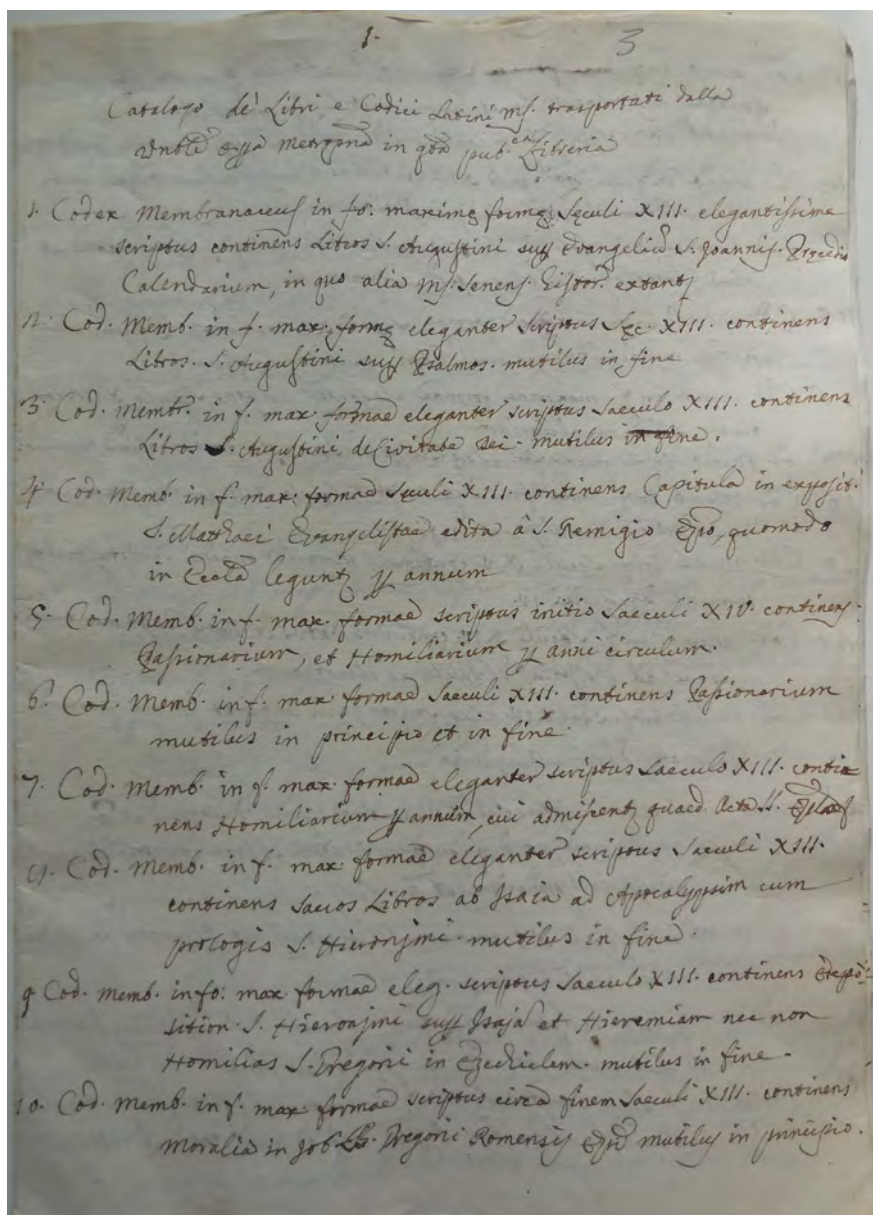 1. 3
Catalogo de' Libri, e Codici Latini ms. trasportati dalla
in qta pub.ca Libreria
1. Codex Membranaceus in fo: maximę formę Sęculi XIII. elegantissime
scriptus continens Libros S. Augustini sup Evangeliũ S. Joannis.
Calendarium, in quo alia ms. Senens. histor. extant
2. Cod. Memb. in f. max. formę eleganter scriptus Sęc. XIII. continens
Libros. S. Augustini sup Psalmos. mutilus in fine
3. Cod. Membr. in f. max. formae eleganter scriptus Saeculo XIII. continens
Libros S. Augustini de Civitate Dei. mutilus in fine.
4. Cod. Memb. in f. max. formae Sęculi XIII. continens Capitula in exposit.
S. Matthaei Evangelistae edita à S. Remigio Epõ, quomodo
in Eccla legunt p annum
5. Cod. Memb. in f. max. formae scriptus initio Saeculi XIV. continens.
Passionarium, et Homiliarium p anni circulum.
6. Cod. Memb. in f. max. formae Saeculi XIII. continens Passionarium
mutilus in principio et in fine.
7. Cod. Memb. in f. max. formae eleganter scriptus Saeculo XIII. conti=
nens Homiliarium p annum, cui admiscent quaed. Acta S.
Cod. Memb. in f. max. formae eleganter scriptus Saeculi XIII.
continens Sacros Libros ab Isaia ad Apocalypsim cum
prologis S. Hieronjmi. mutilus in fine.
9. Cod. Memb. in fo: max. formae eleg. scriptus Saeculo XIII. continens Expo=
sition. S. Hieronjmi sup Isajã et Hieremiam nec non
Homilias S. Gregorii in Ezechielem. mutilus in fine.
10. Cod. Memb. in f. max. formae scriptus circa finem Saeculi XIII. continens
Moralia in Job S. Gregorii Romensis Epĩ mutilus in principio.